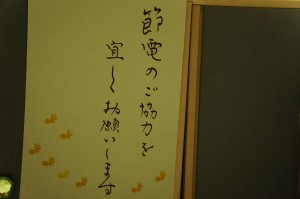 節電のご協力を
宜しくお願いします